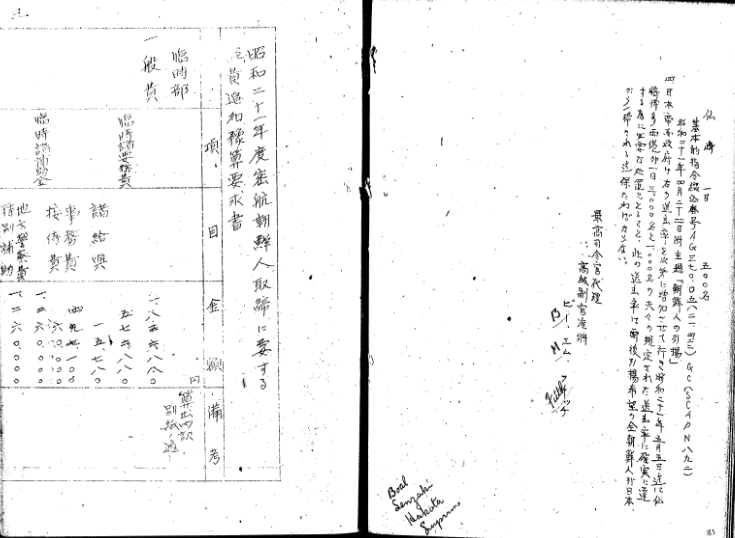 仙崎 一日 五〇〇名
基本的指令綴込番号AG三七〇・〇五(八二・四三)GC(SCAPN八九二)
昭和二十一年四月二十二日附主題「朝鮮人の引揚」
四日本帝国政府は右の送出率を次第に増加させて行き昭和二十一年五月五日迄に仙
崎博多両港が一日三、〇〇〇名と一、〇〇〇名の夫々の規定された送出率に確実に達
する為に必要な処置をとること、此の送出率は爾後引揚希望の全朝鮮人が日本
から一掃される迄保たねばならない。
最高司令官代理
高級副官准将
ビー・エム・フィッチ
B/M/Fitch
Boal
Senzaki
Hakata
83
昭和二十一年度密航朝鮮人取締に要する
追加予算要求書
項 目 金額 備考
臨時部
一般費 二、八三六、八八〇円 算出内訳別紙ノ通
臨時諸要費 五七六、八八〇
諸給与 一五、七八〇
事務費 四九七、一〇〇
接待費 六〇、〇〇〇
臨時諸補助金 一、二六〇、〇〇〇
地方警察費特別補助 一、二六〇、〇〇〇